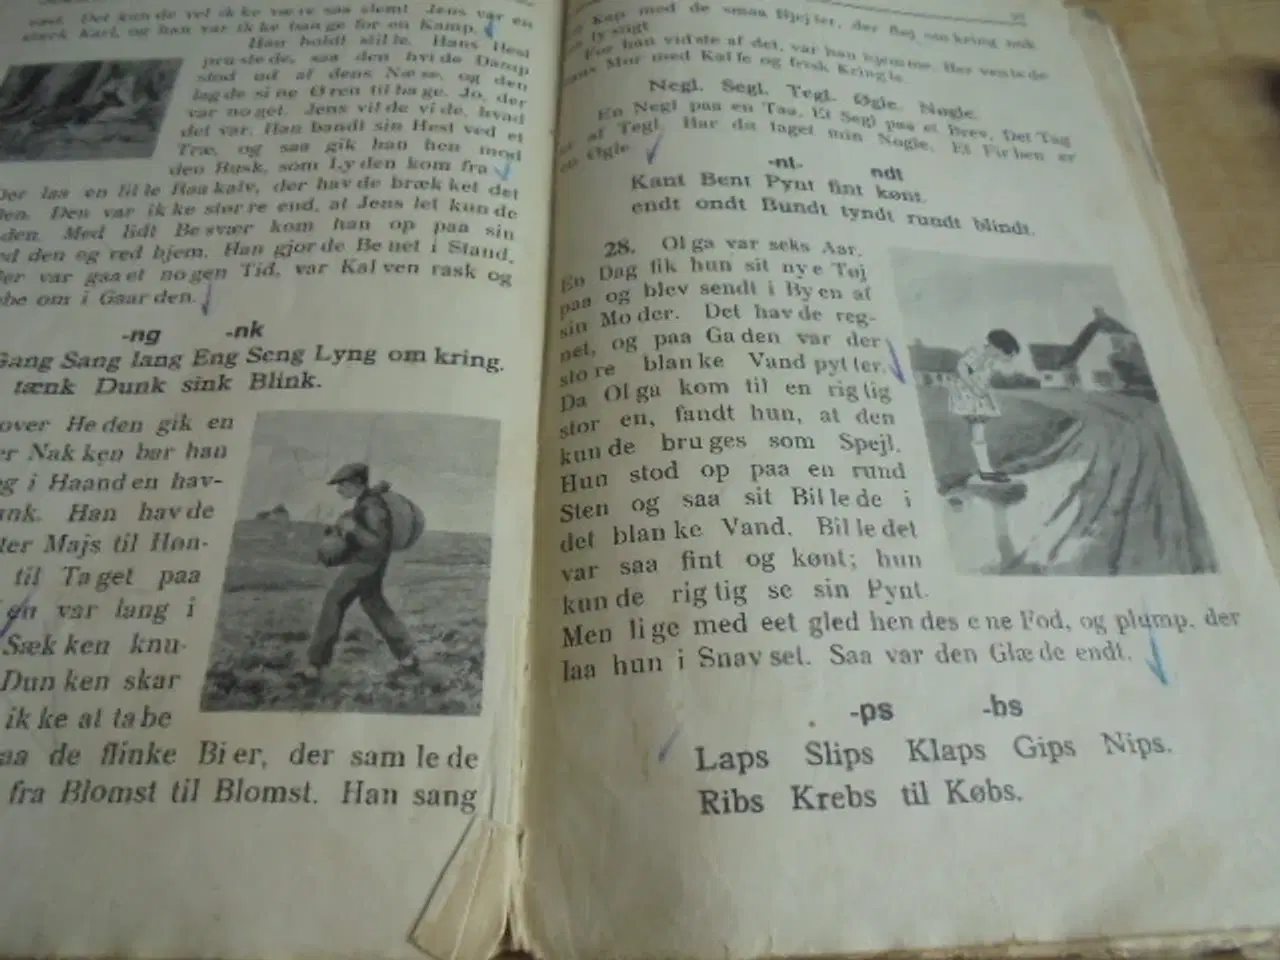 væst. Det kun de vel ik ke væ re saa slemt Jens var en
stærk Karl, og han var ik ke ban ge for en Kamp.
Han holdt stil le. Hans Hest
pru ste de, saa den hvi de Damp
stod ud af dens Næ se, og den
lag de si ne Ø ren til ba ge. Jo, der
var no get. Jens vil de vi de, hvad
det var. Han bandt sin Hest ved et
Træ, og saa gik han hen mod
den Busk, som Ly den kom fra
Der laa en lil le Raa kalv, der hav de bræk ket det
Den var ik ke stør re end, at Jens let kun de
Med lidt Be svær kom han op paa sin
den og red hjem. Han gjor de Be net i Stand.
var gaa et no gen Tid, var Kal ven rask og
om i Gaar den.
-ng -nk
Gang Sang lang Eng Seng Lyng om kring.
tænk Dunk sink Blink.
over He den gik en
Nak ken bar han
i Haand en hav-
Han hav de
Majs til Høn-
til Ta get paa
var lang i
Sæk ken knu-
Dun ken skar
ik ke at ta be
de flinke Bi er, der sam le de
fra Blomst til Blomst. Han sang
Kap med de smaa Hjejler, der fløj om kring nok
ly stigt
Før han vid ste af det, var han hjemme. Her vente de
hans Mor med Kaf fe og frisk Kringle.
Negl. Segl. Tegl. Øgle. Nøgle.
En Negl paa en Taa. Et Segl paa et Brev. Det Tag
er af Tegl. Har du taget min Nøgle. Et Firben er
en Øgle
-nt- ndt
Kant Bent Pynt fint kønt.
endt ondt Bundt tyndt rundt blindt.
28. Ol ga var seks Aar.
En Dag fik hun sit ny e Tøj
paa og blev sendt i By en af
sin Mo der. Det hav de reg-
net, og paa Ga den var der
sto re blan ke Vand pyt ter.
Da Ol ga kom til en rig tig
stor en, fandt hun, at den
kun de bru ges som Spejl.
Hun stod op paa en rund
Sten og saa sit Bil le de i
det blan ke Vand. Bil le det
var saa fint og kønt; hun
kun de rig tig se sin Pynt.
Men li ge med eet gled hen des e ne Fod, og plump, der
laa hun i Snav set. Saa var den Glæ de endt.
-ps -bs
Laps Slips Klaps Gips Nips.
Ribs Krebs til Købs.